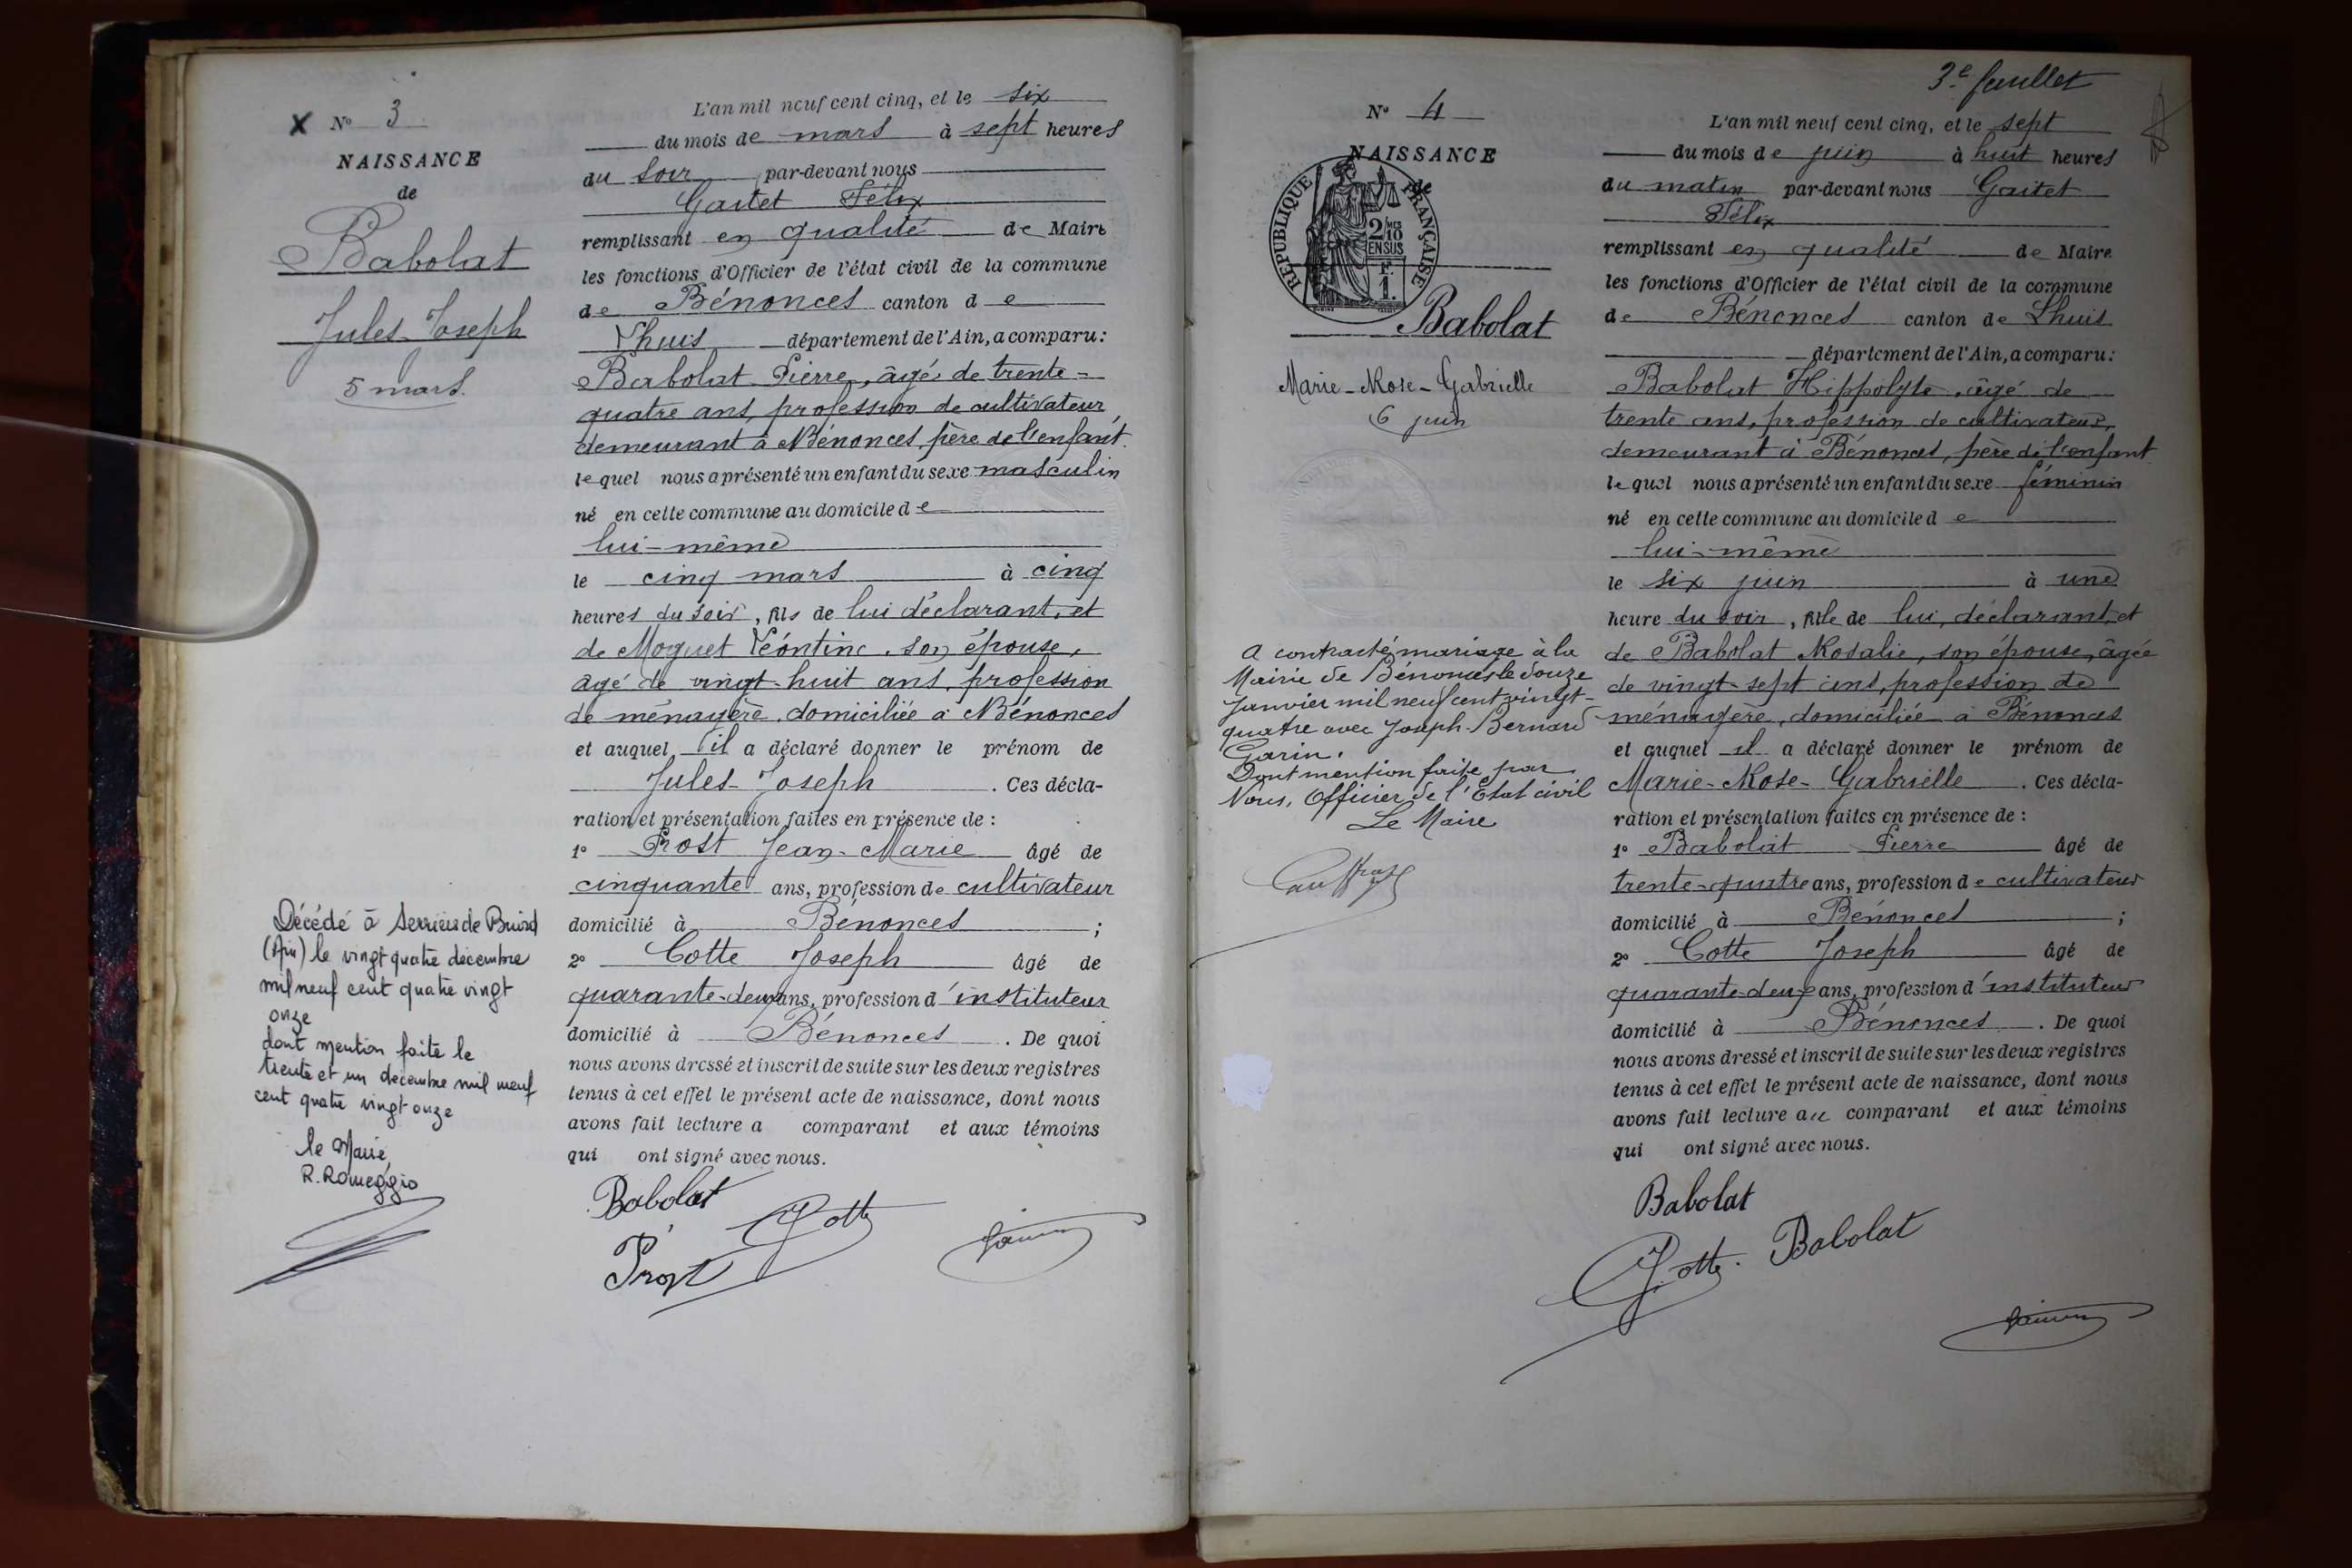 X N° 3
NAISSANCE
de
Babolat
Jules-Joseph
5 mars.
Décédé à Serrières de Briord
(Ain) le vingt quatre décembre
mil neuf cent quatre vingt
onze
dont mention faite le
trente et un décembre mil neuf
cent quatre vingt onze
le Maire
R. Romeggio
L'an mil neuf cent cinq, et le six
du mois de mars à sept heures
du soir par-devant nous
Gaitet Félix
remplissant en qualité de Maire
les fonctions d'Officier de l'état civil de la commune
de Bénonces canton d e
Lhuis département de l'Ain, a comparu :
Babolat Pierre, âgé de trente-
quatre ans, profession de cultivateur,
demeurant à Bénonces, père de l'enfant.
lequel nous a présenté un enfant du sexe masculin
né en cette commune au domicile d e
lui-même
le cinq mars à cinq
heures du soir, fils de lui déclarant, et
de Moguet Léontine, son épouse,
âgé de vingt-huit ans, profession
de ménagère, domiciliée à Bénonces
et auquel il a déclaré donner le prénom de
Jules-Joseph . Ces décla-
ration et présentation faites en présence de :
1° Prost Jean-Marie âgé de
cinquante ans, profession de cultivateur
domicilié à Bénonces ;
2° Cotte Joseph âgé de
quarante-deux ans, profession d'instituteur
domicilié à Bénonces . De quoi
nous avons dressé et inscrit de suite sur les deux registres
tenus à cet effet le présent acte de naissance, dont nous
avons fait lecture a comparant et aux témoins
qui ont signé avec nous.
Babolat
J Cotte
Prost
3e feuillet
N° 4
NAISSANCE
de
REPUBLIQUE FRANÇAISE
2/10 MES
EN SUS
1 F.
Babolat
Marie-Rose-Gabrielle
6 juin
A contracté mariage à la
Mairie de Bénonces le douze
Janvier mil neuf cent vingt-
quatre avec Joseph-Bernard
Garin.
Dont mention faite par
Nous, Officier de l'Etat civil
Le Maire
L'an mil neuf cent cinq, et le sept
du mois de juin à huit heures
du matin par-devant nous Gaitet
Félix
remplissant en qualité de Maire
les fonctions d'Officier de l'état civil de la commune
de Bénonces canton de Lhuis
département de l'Ain, a comparu :
Babolat Hippolyte, âgé de
trente ans, profession de cultivateur,
demeurant à Bénonces, père de l'enfant
lequel nous a présenté un enfant du sexe féminin
né en cette commune au domicile d e
lui-même
le six juin à une
heure du soir, fille de lui, déclarant, et
de Babolat Rosalie, son épouse, âgée
de vingt-sept ans, profession de
ménagère, domiciliée à Bénonces
et auquel il a déclaré donner le prénom de
Marie-Rose-Gabrielle . Ces décla-
ration et présentation faites en présence de :
1° Babolat Pierre âgé de
trente-quatre ans, profession de cultivateur
domicilié à Bénonces ;
2° Cotte Joseph âgé de
quarante-deux ans, profession d'instituteur
domicilié à Bénonces . De quoi
nous avons dressé et inscrit de suite sur les deux registres
tenus à cet effet le présent acte de naissance, dont nous
avons fait lecture au comparant et aux témoins
qui ont signé avec nous.
Babolat
J Cotte. Babolat